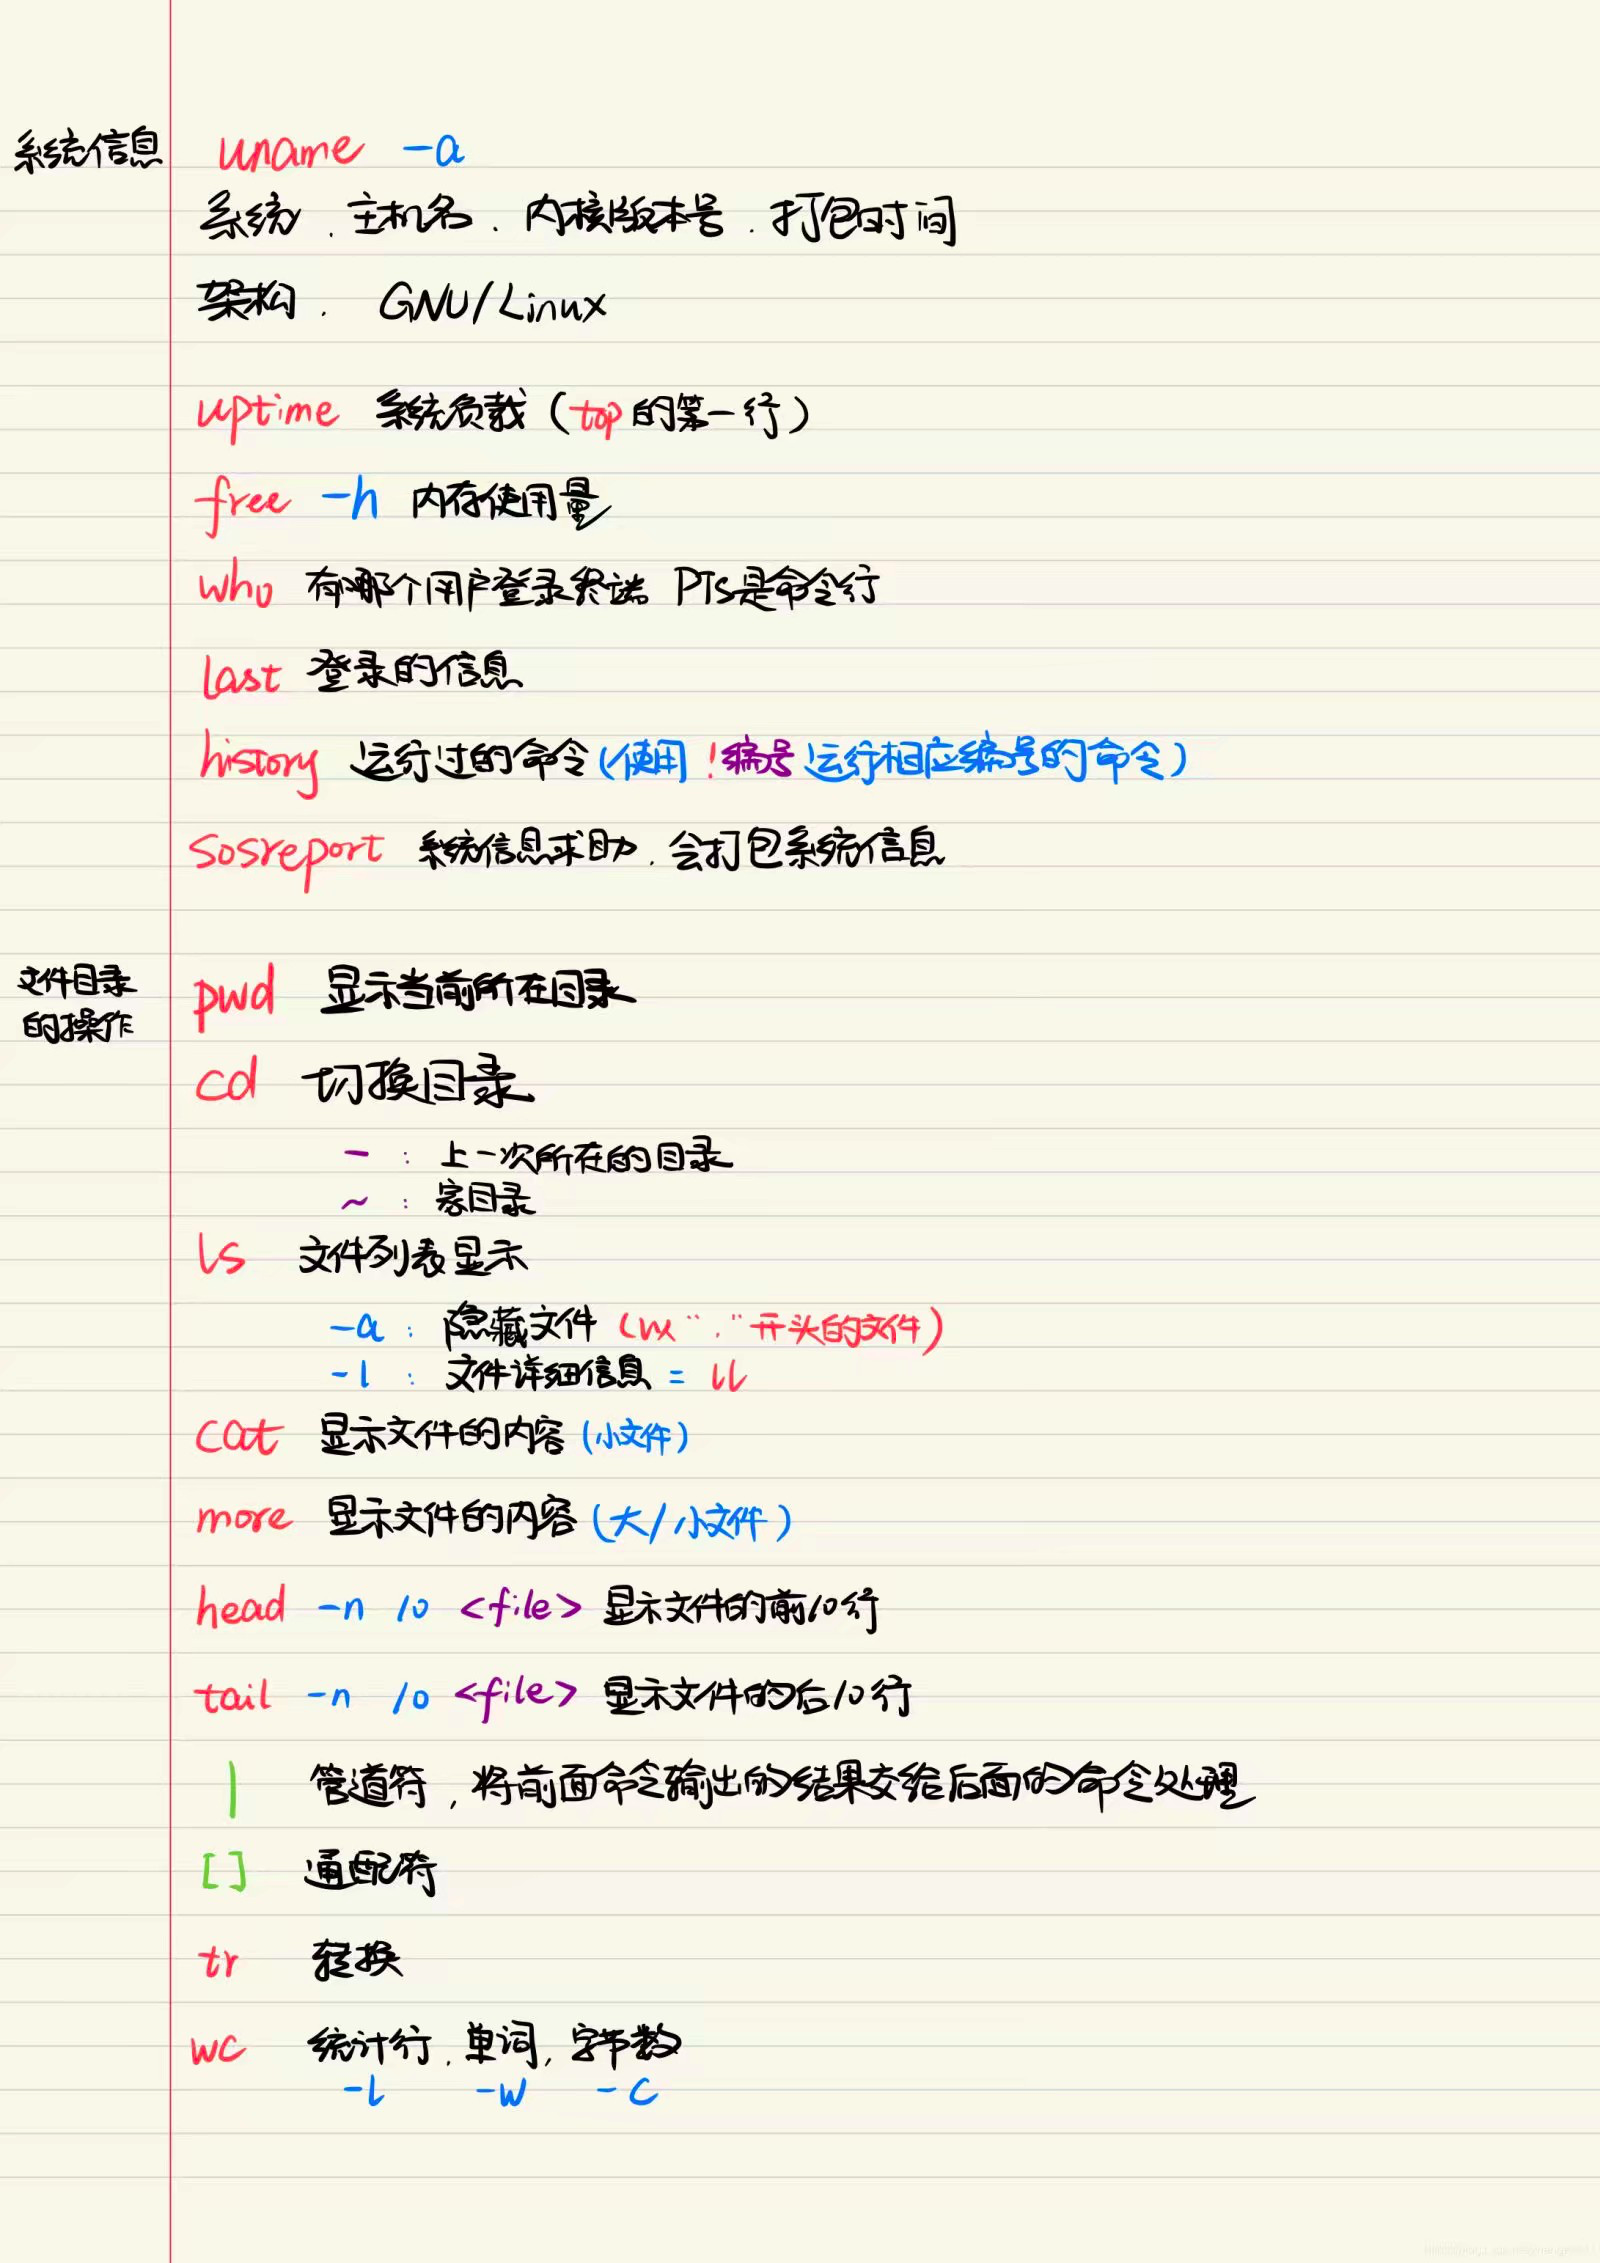 系统信息 uname -a
系统、主机名、内核版本号、打包时间
架构、GNU/Linux
uptime 系统负载(top的第一行)
free -h 内存使用量
who 有哪个用户登录终端 PTS是命令行
last 登录的信息
history 运行过的命令(使用 !编号 运行相应编号的命令)
sosreport 系统信息求助、会打包系统信息
文件目录
的操作
pwd 显示当前所在目录
cd 切换目录
- : 上一次所在的目录
~ : 家目录
ls 文件列表显示
-a : 隐藏文件(以"."开头的文件)
-l : 文件详细信息 = ll
cat 显示文件的内容(小文件)
more 显示文件的内容(大/小文件)
head -n 10 <file> 显示文件的前10行
tail -n 10 <file> 显示文件的后10行
| 管道符,将前面命令输出的结果交给后面的命令处理
[] 通配符
tr 转换
wc 统计行,单词,字节数
-l -w -c